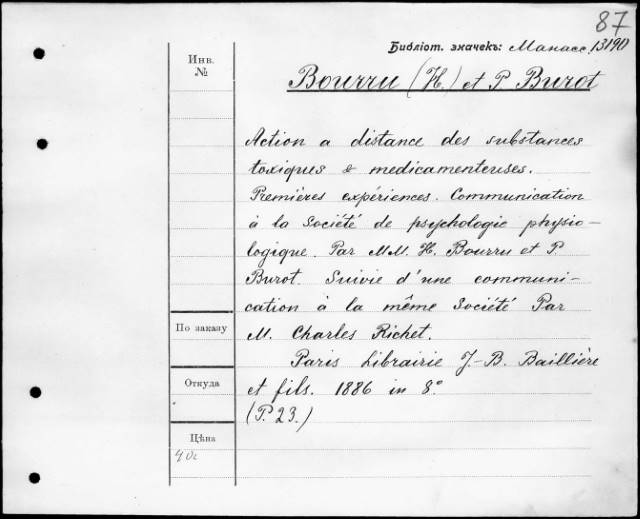 87
Библіот. значекъ: Манасс. 13190
Инв.
№
Bourru (H.) et P. Burot
Action a distance des substances
toxiques & medicamenteuses.
Premières expériences. Communication
à la Société de psychologie physio-
logique. Par MM. H. Bourru et P.
Burot. Suivie d'une communi-
cation à la même Société Par
M. Charles Richet.
Paris Librairie J.-B. Baillière
et fils. 1886 in 8º
(P. 23.)
По заказу
Откуда
Цѣна